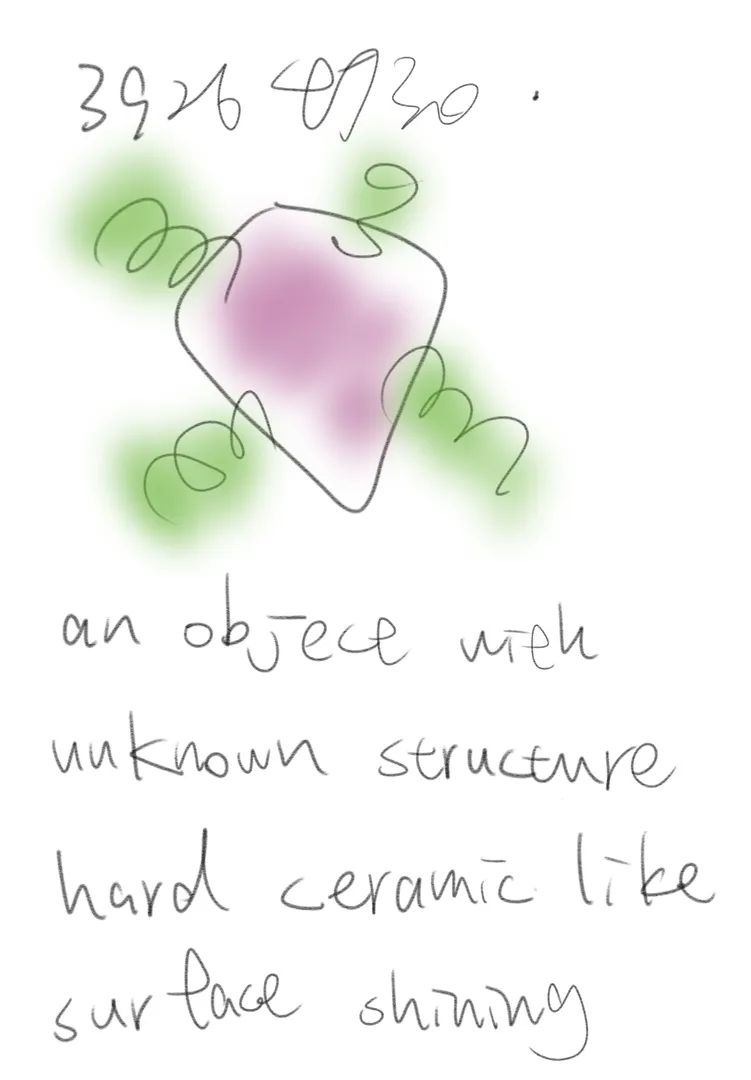 3926 8930
an object with
unknown structure
hard ceramic like
surface shining